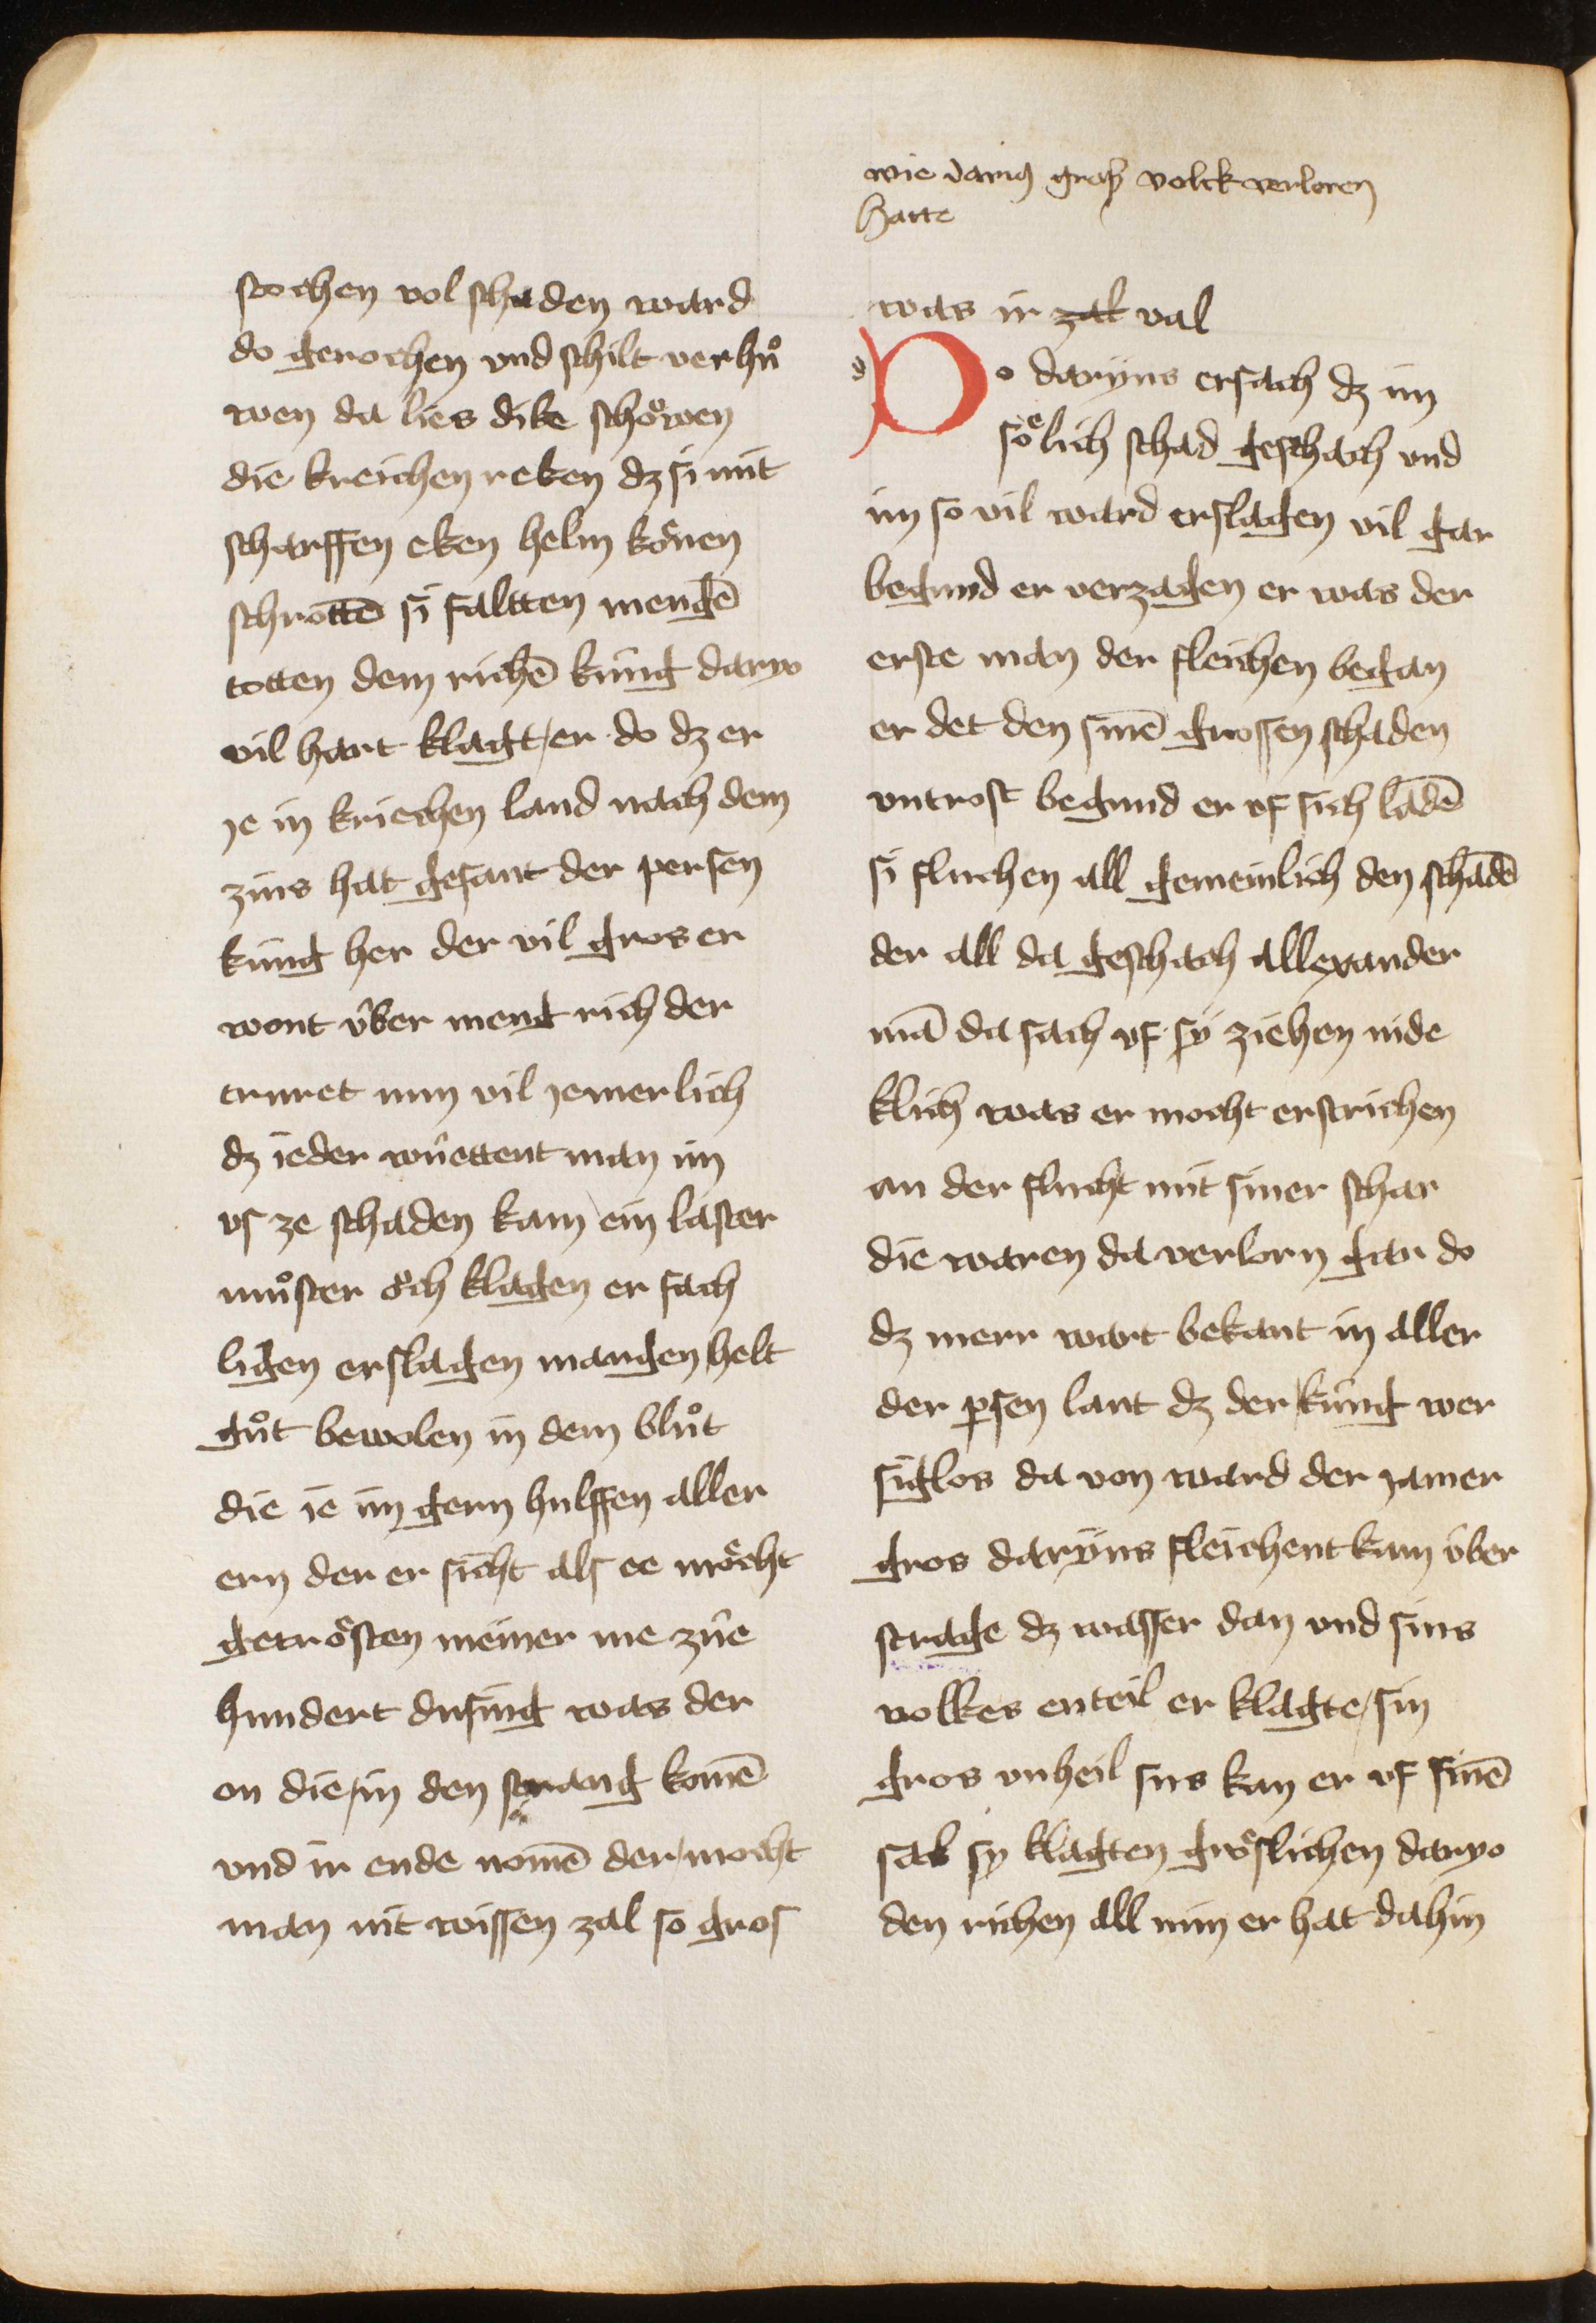 stochen vol schaden ward
do gerochen vnd schilt verhuͦ
wen da lies dike schoͤwen
die kreichen reken dz si mit
scharffen eken helm koͤnen
schrottē si faltten mengē
totten dem richē kúng daryo
vil hart klagt er do dz er
ie in kriechen land nach dem
zins hat gesant der persen
kúng her der vil gros er
wont úber mengt rich der
truret nun vil iemerlich
dz ieder wúettent man im
vs ze schaden kam ein laster
muͦster oͧch klagen er sach
ligen erslagen mangen helt
guͦt bewolen in dem bluͦt
die ie im gern hulffen aller
ern der er sicht als ee moͤcht
getroͤsten meiner me zúe
hundert dusing was der
on die in den strang komē
vnd ir ende nomē der mocht
man nit wissen zal so gros
wie darius groß volck verloren
hatte
was ir zal val
Do daryus ersach dz im
soͤlich schad geschach vnd
im so vil ward erslagen vil gar
begund er verzagen er was der
erste man der fleichen began
er det den sinē grossen schaden
vntrost begund er vf sich ladē
si fluchen all gemeinlich den schadē
der all da geschach allexander
mā da sach vf sy ziehen nide
klich was er mocht erstrichen
an der flucht mit siner schar
die waren da verlorn gar do
dz merr wart bekant in aller
der psen lant dz der kúng wer
siglos da von ward der iamer
gros daryus fleichent kam úber
strage dz wasser dan vnd sins
volkes enteil er klagte sin
gros vnheil sus kan er vf sinē
sal sy klagten groͤslichen daryo
den richen all min er hat dahin